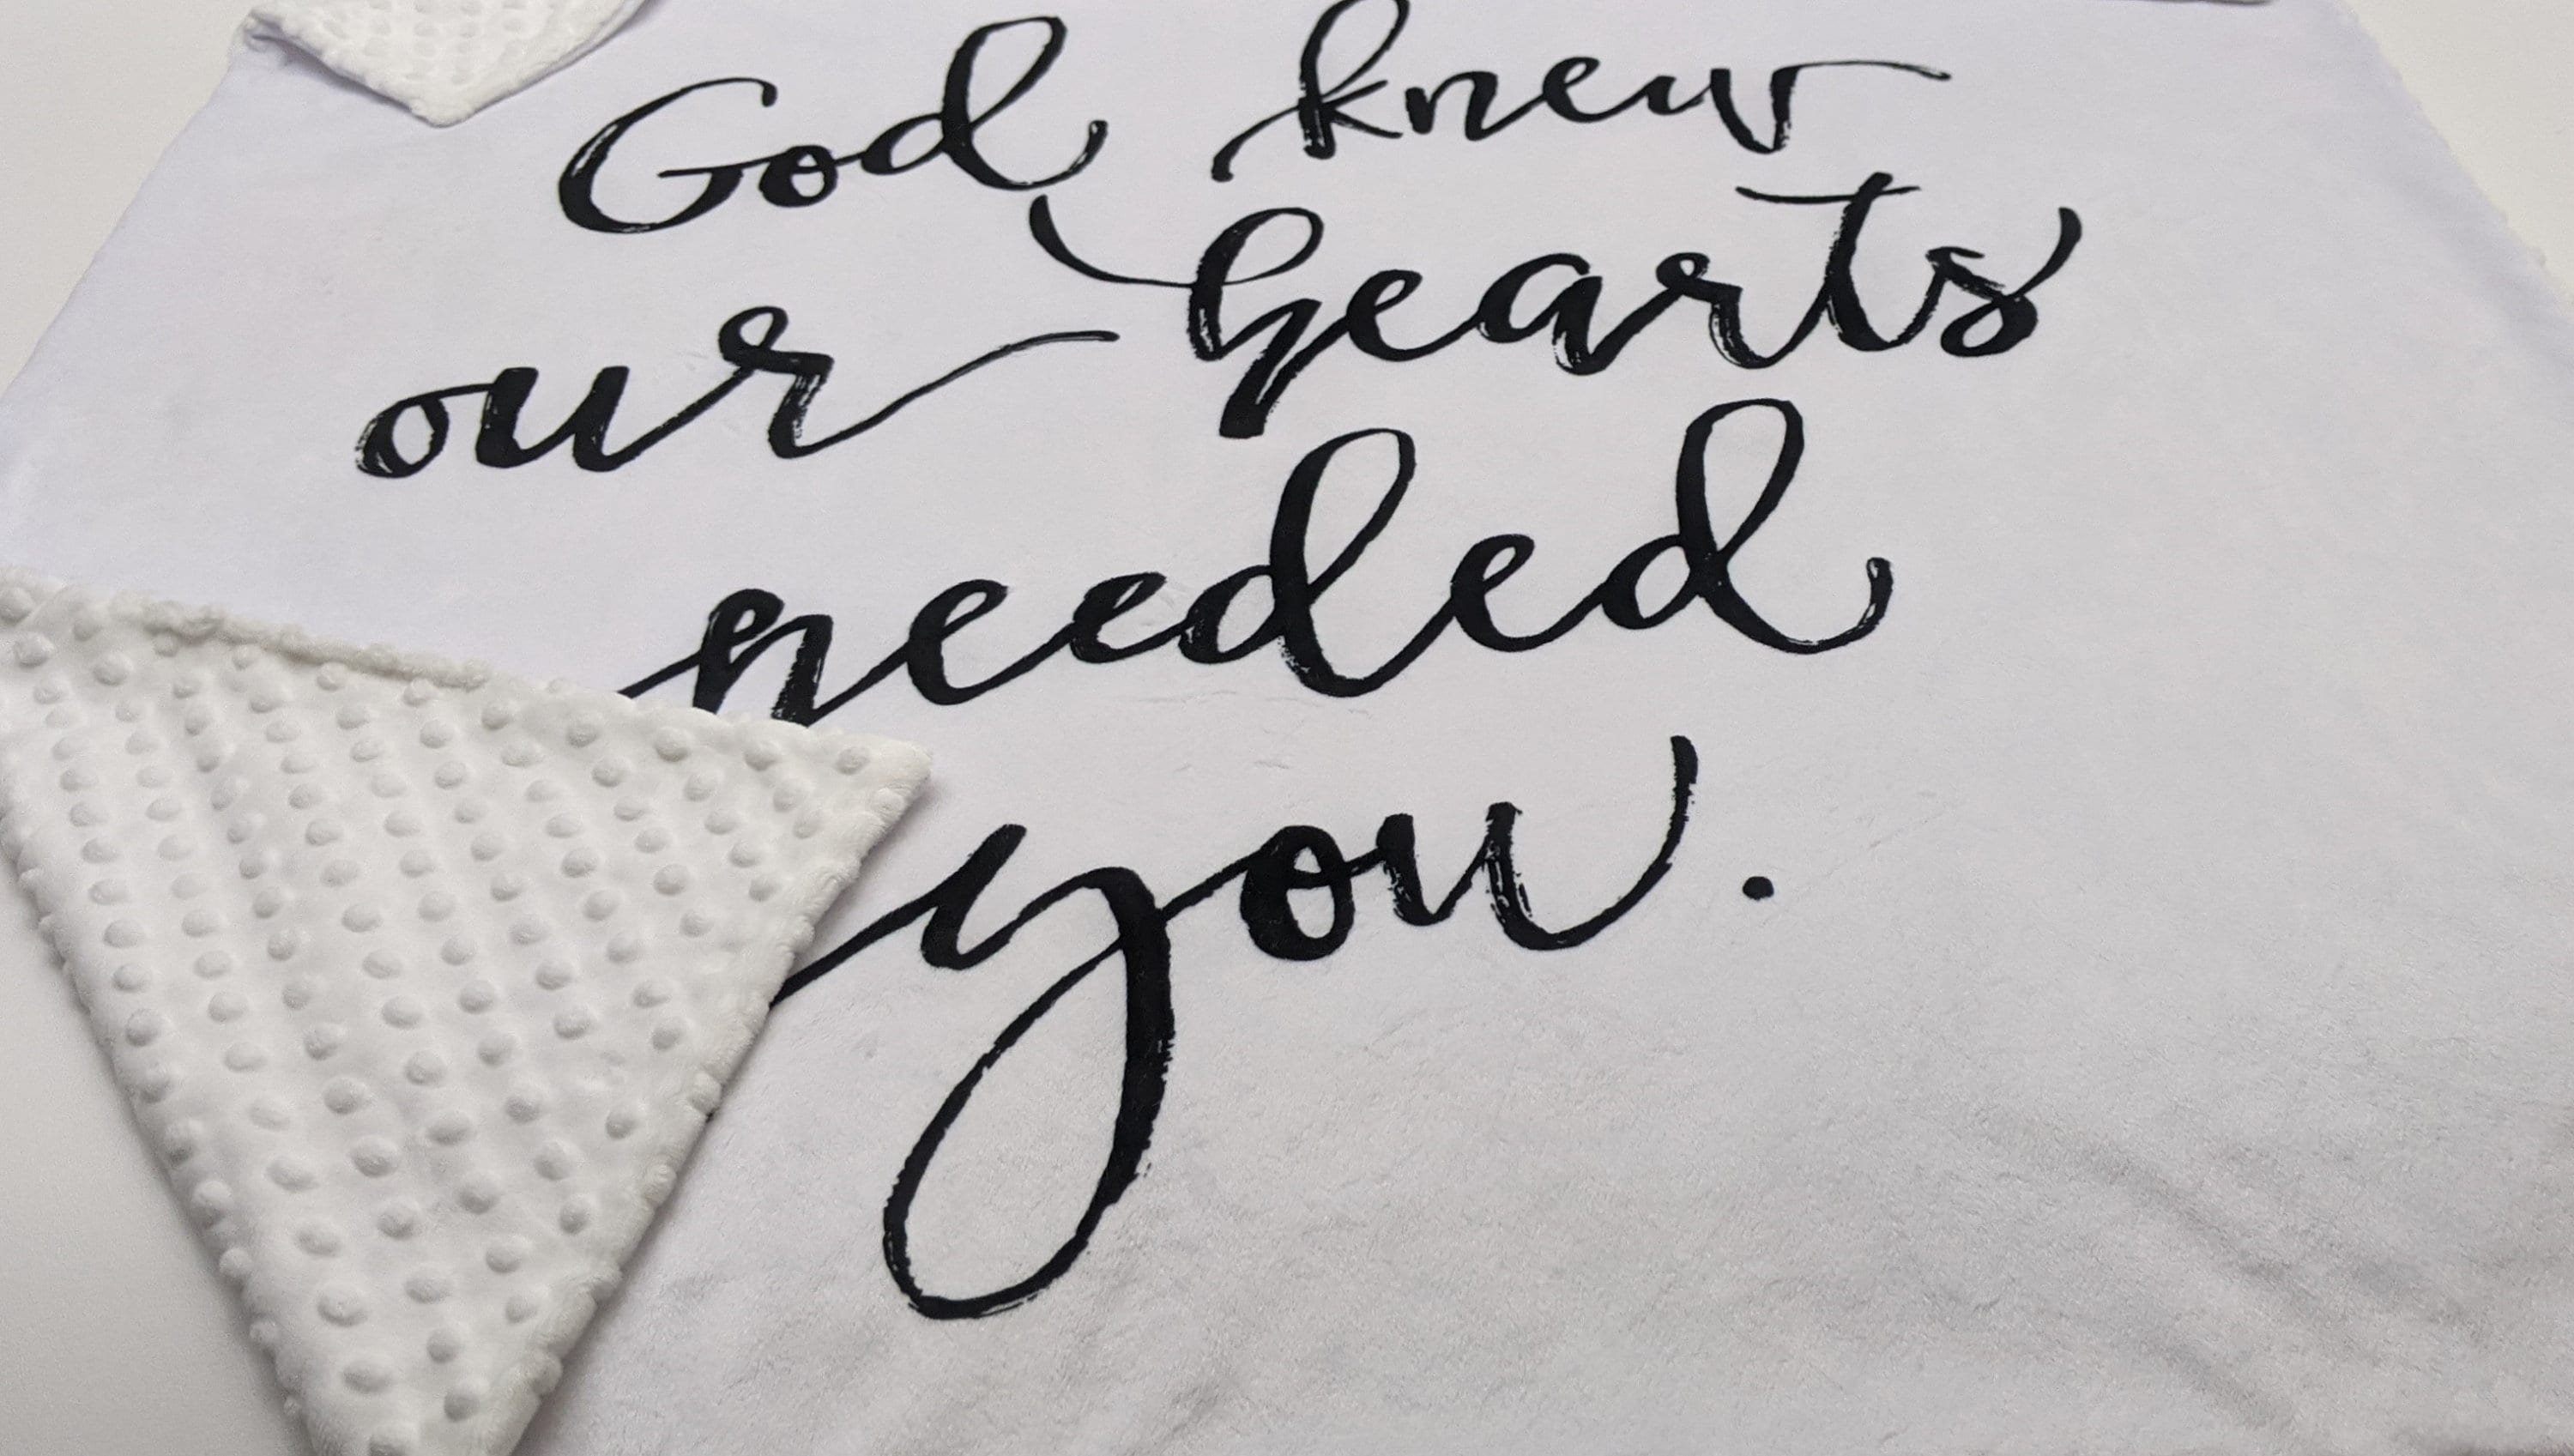 God knew
our hearts
needed
you.